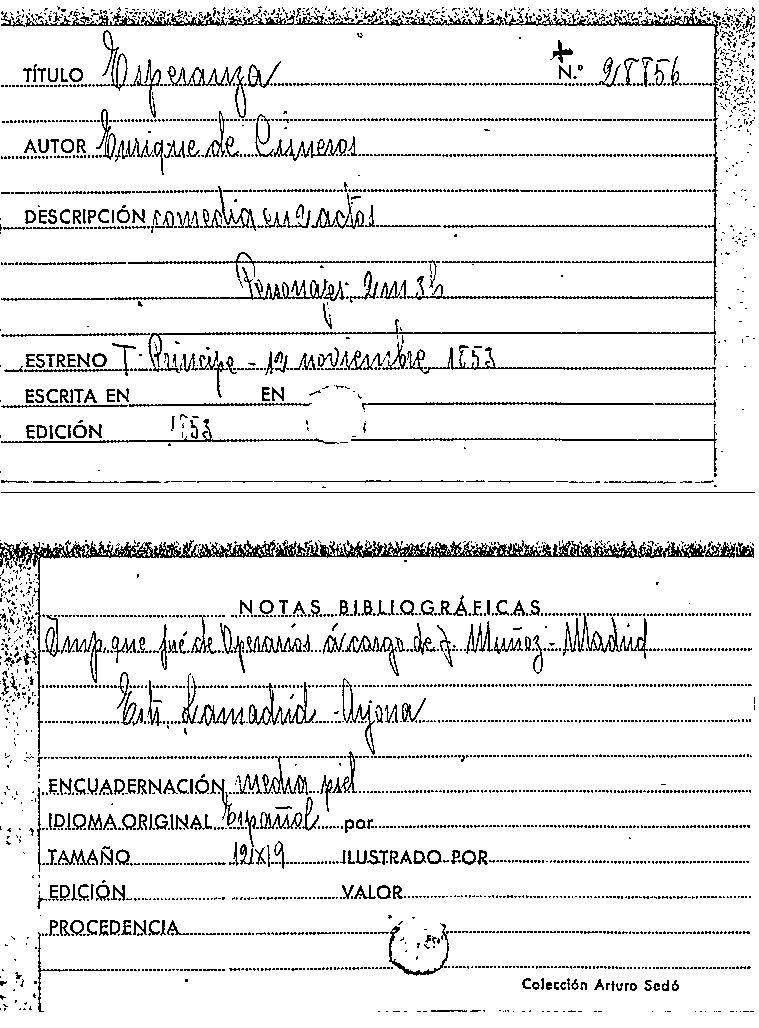 TÍTULO Esperanza N.º 28856
AUTOR Enrique de Cisneros
DESCRIPCIÓN comedia en 2 actos
Personajes: 2m 3h
ESTRENO T. Príncipe - 12 noviembre 1853
ESCRITA EN EN
EDICIÓN 1853
NOTAS BIBLIOGRÁFICAS
Imp. que fué de Operarios á cargo de J. Muñoz - Madrid
Est. Lamadrid - Arjona
ENCUADERNACIÓN media piel
IDIOMA ORIGINAL Español por
TAMAÑO 12x19 ILUSTRADO POR
EDICIÓN VALOR
PROCEDENCIA
Colección Arturo Sedó